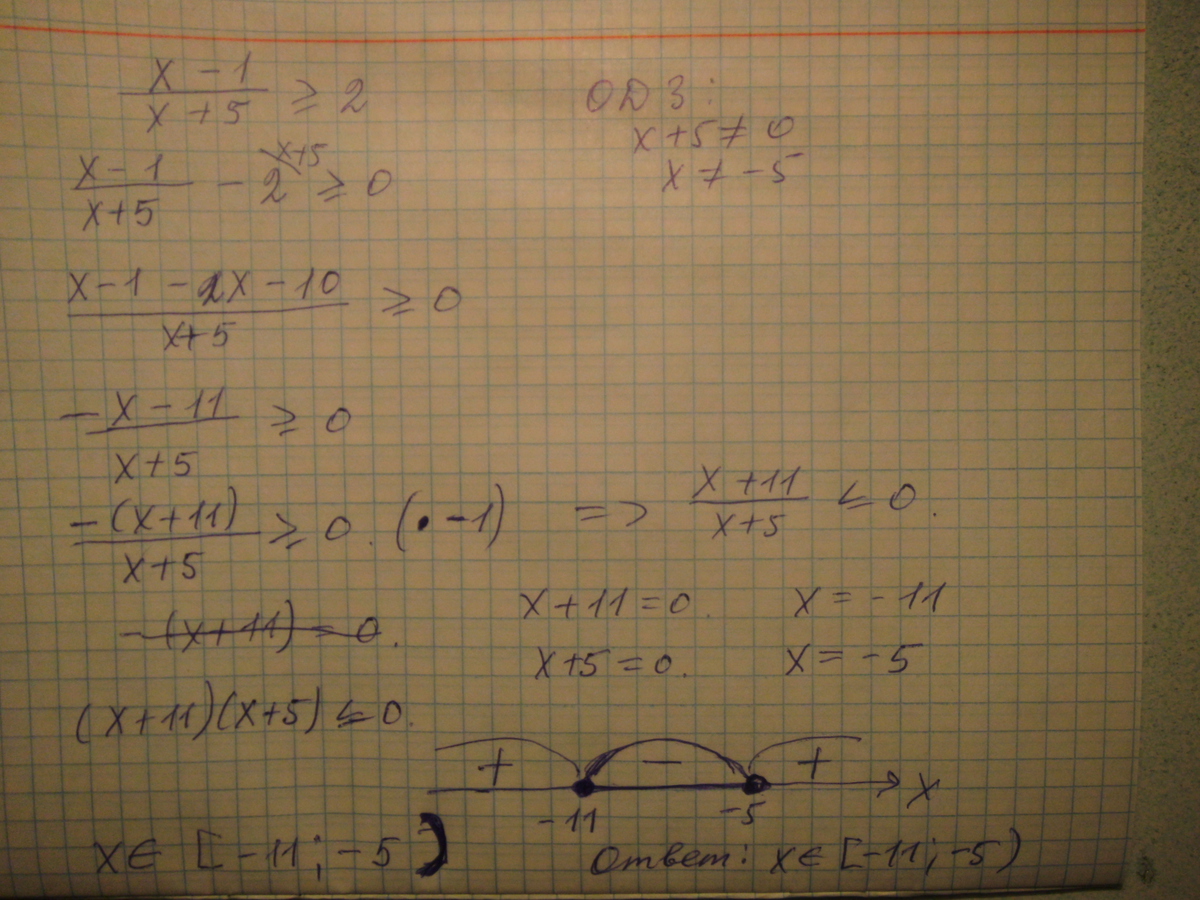 (x - 1)/(x + 5) ≥ 2
ОДЗ:
x + 5 ≠ 0
x ≠ -5
(x - 1)/(x + 5) - 2 x+5 ≥ 0
(x - 1 - 2x - 10)/(x + 5) ≥ 0
(-x - 11)/(x + 5) ≥ 0
-(x + 11)/(x + 5) ≥ 0. (· -1) => (x + 11)/(x + 5) ≤ 0.
-(x + 11) = 0.
x + 11 = 0. x = -11
x + 5 = 0. x = -5
(x + 11)(x + 5) ≤ 0.
+ - + x
-11 -5
x ∈ [-11; -5)
Ответ: x ∈ [-11; -5)